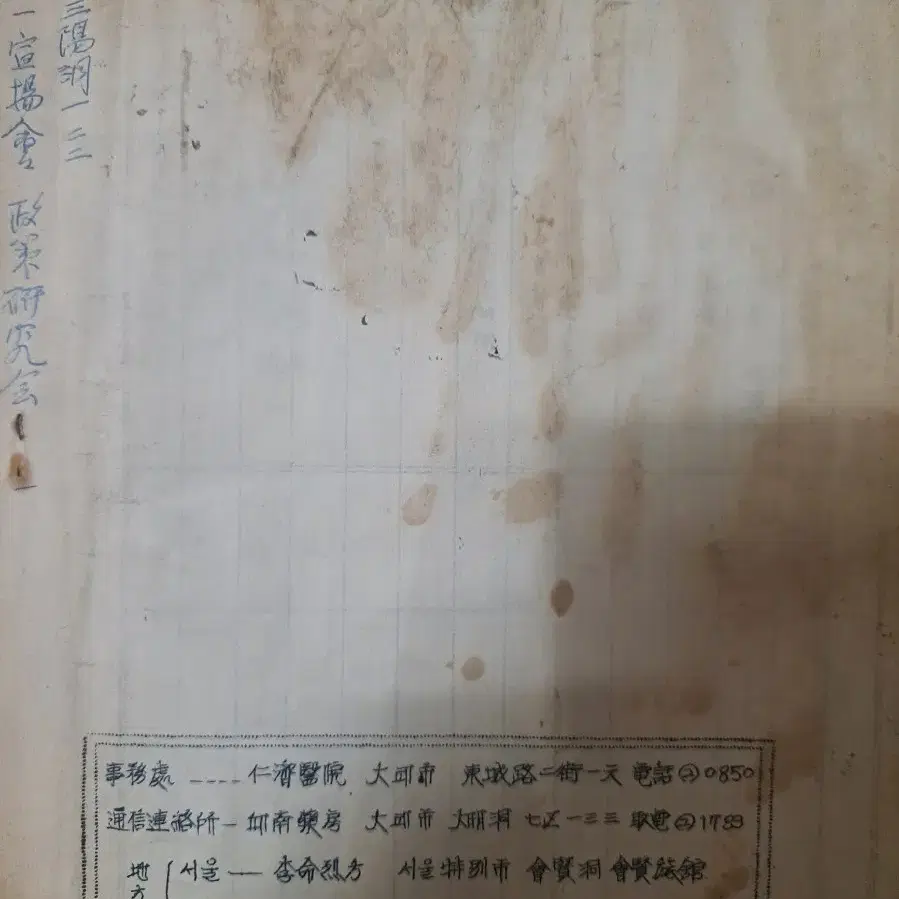 三陽洞一二二
一宣揚會 政策研究会
事務處 ---- 仁濟醫院 大邱市 東城路二街一六 電話②0850
通信連絡所 - 邱南藥房 大邱市 大明洞 七区一三三 取電②1783
地方
서울 —— 李命烈方 서울特別市 會賢洞 會賢旅館